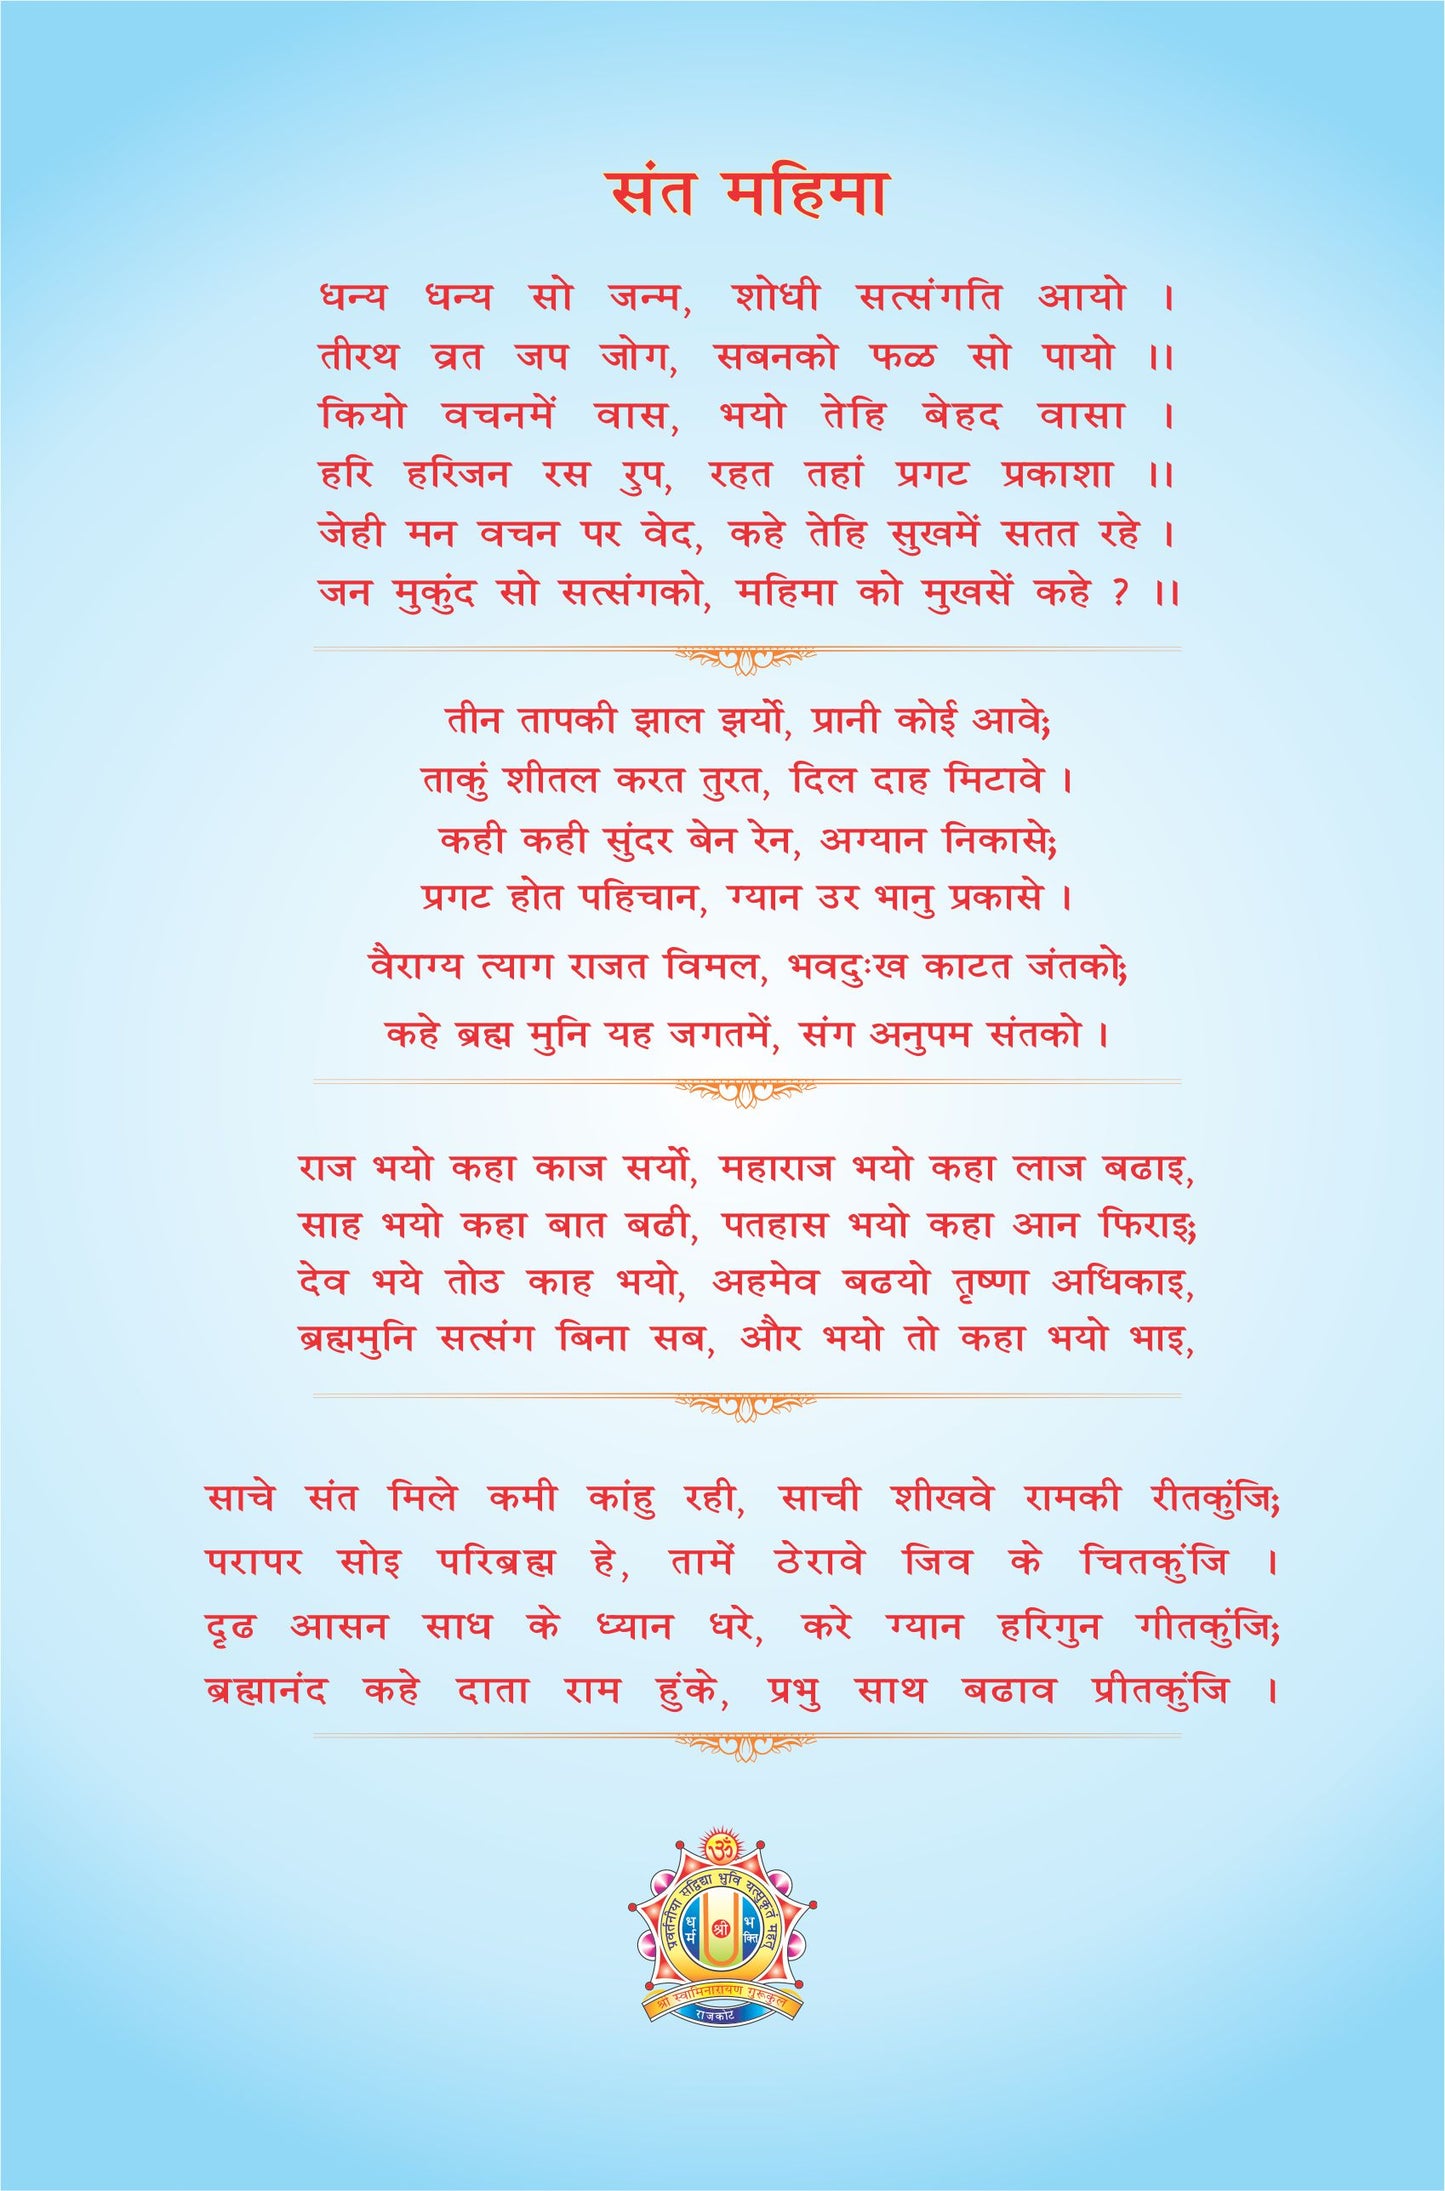 संत महिमा
धन्य धन्य सो जन्म, शोधी सत्संगति आयो ।
तीरथ व्रत जप जोग, सबनको फळ सो पायो ।।
कियो वचनमें वास, भयो तेहि बेहद वासा ।
हरि हरिजन रस रुप, रहत तहां प्रगट प्रकाशा ।।
जेही मन वचन पर वेद, कहे तेहि सुखमें सतत रहे ।
जन मुकुंद सो सत्संगको, महिमा को मुखसें कहे ? ।।
तीन तापकी झाल झर्यो, प्रानी कोई आवे;
ताकुं शीतल करत तुरत, दिल दाह मिटावे ।
कही कही सुंदर बेन रेन, अग्यान निकासे;
प्रगट होत पहिचान, ग्यान उर भानु प्रकासे ।
वैराग्य त्याग राजत विमल, भवदुःख काटत जंतको;
कहे ब्रह्म मुनि यह जगतमें, संग अनुपम संतको ।
राज भयो कहा काज सर्यो, महाराज भयो कहा लाज बढाइ,
साह भयो कहा बात बढी, पतहास भयो कहा आन फिराइ;
देव भये तोउ काह भयो, अहमेव बढयो तृष्णा अधिकाइ,
ब्रह्ममुनि सत्संग बिना सब, और भयो तो कहा भयो भाइ,
साचे संत मिले कमी कांहु रही, साची शीखवे रामकी रीतकुंजि;
परापर सोइ परिब्रह्म हे, तामें ठेरावे जिव के चितकुंजि ।
दृढ आसन साध के ध्यान धरे, करे ग्यान हरिगुन गीतकुंजि;
ब्रह्मानंद कहे दाता राम हुंके, प्रभु साथ बढाव प्रीतकुंजि ।
ॐ
प्रवर्तनीया सद्विद्या भुवि यत्सुकृतं महत्
धर्म श्री भक्ति
श्री स्वामिनारायण गुरूकुल
राजकोट